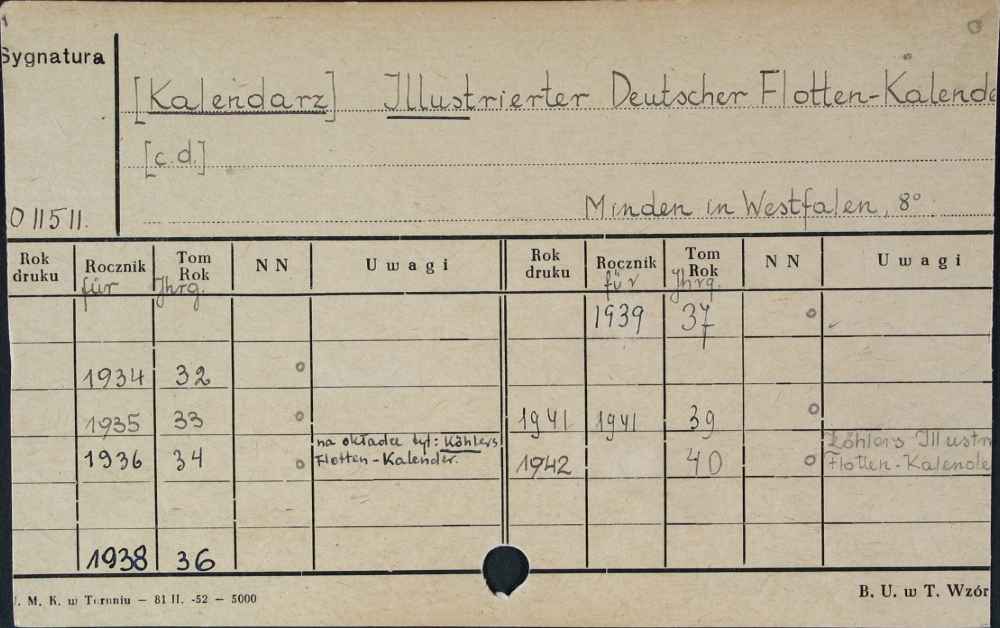 Sygnatura
[Kalendarz] Illustrierter Deutscher Flotten-Kalende
[c.d.]
O 11511. Minden in Westfalen, 8°
Rok druku Rocznik für Tom Rok Jhrg. N N Uwagi Rok druku Rocznik für Tom Rok Jhrg. N N Uwagi
1939 37 o
1934 32 o
1935 33 o 1941 1941 39 o
1936 34 o na okładce tyt: Köhlers Flotten-Kalender. 1942 40 o Köhlers Illustr Flotten-Kalende
1938 36
. M. K. w Toruniu — 81 II. -52 — 5000 B. U. w T. Wzór